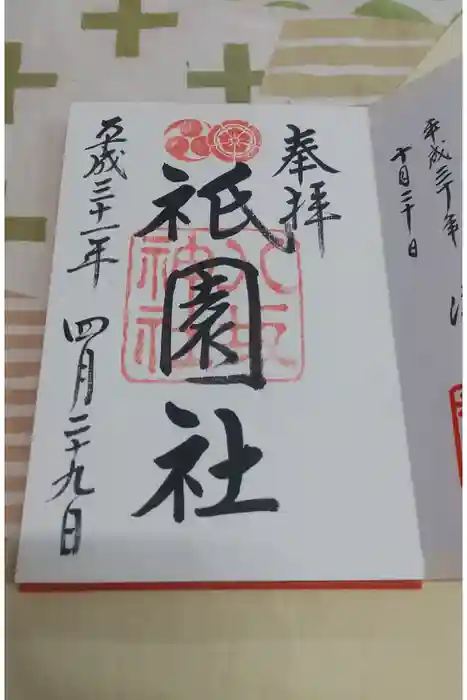 奉拝
祇園社
八坂神社
平成三十一年 四月二十九日
平成三十年
十月二十日